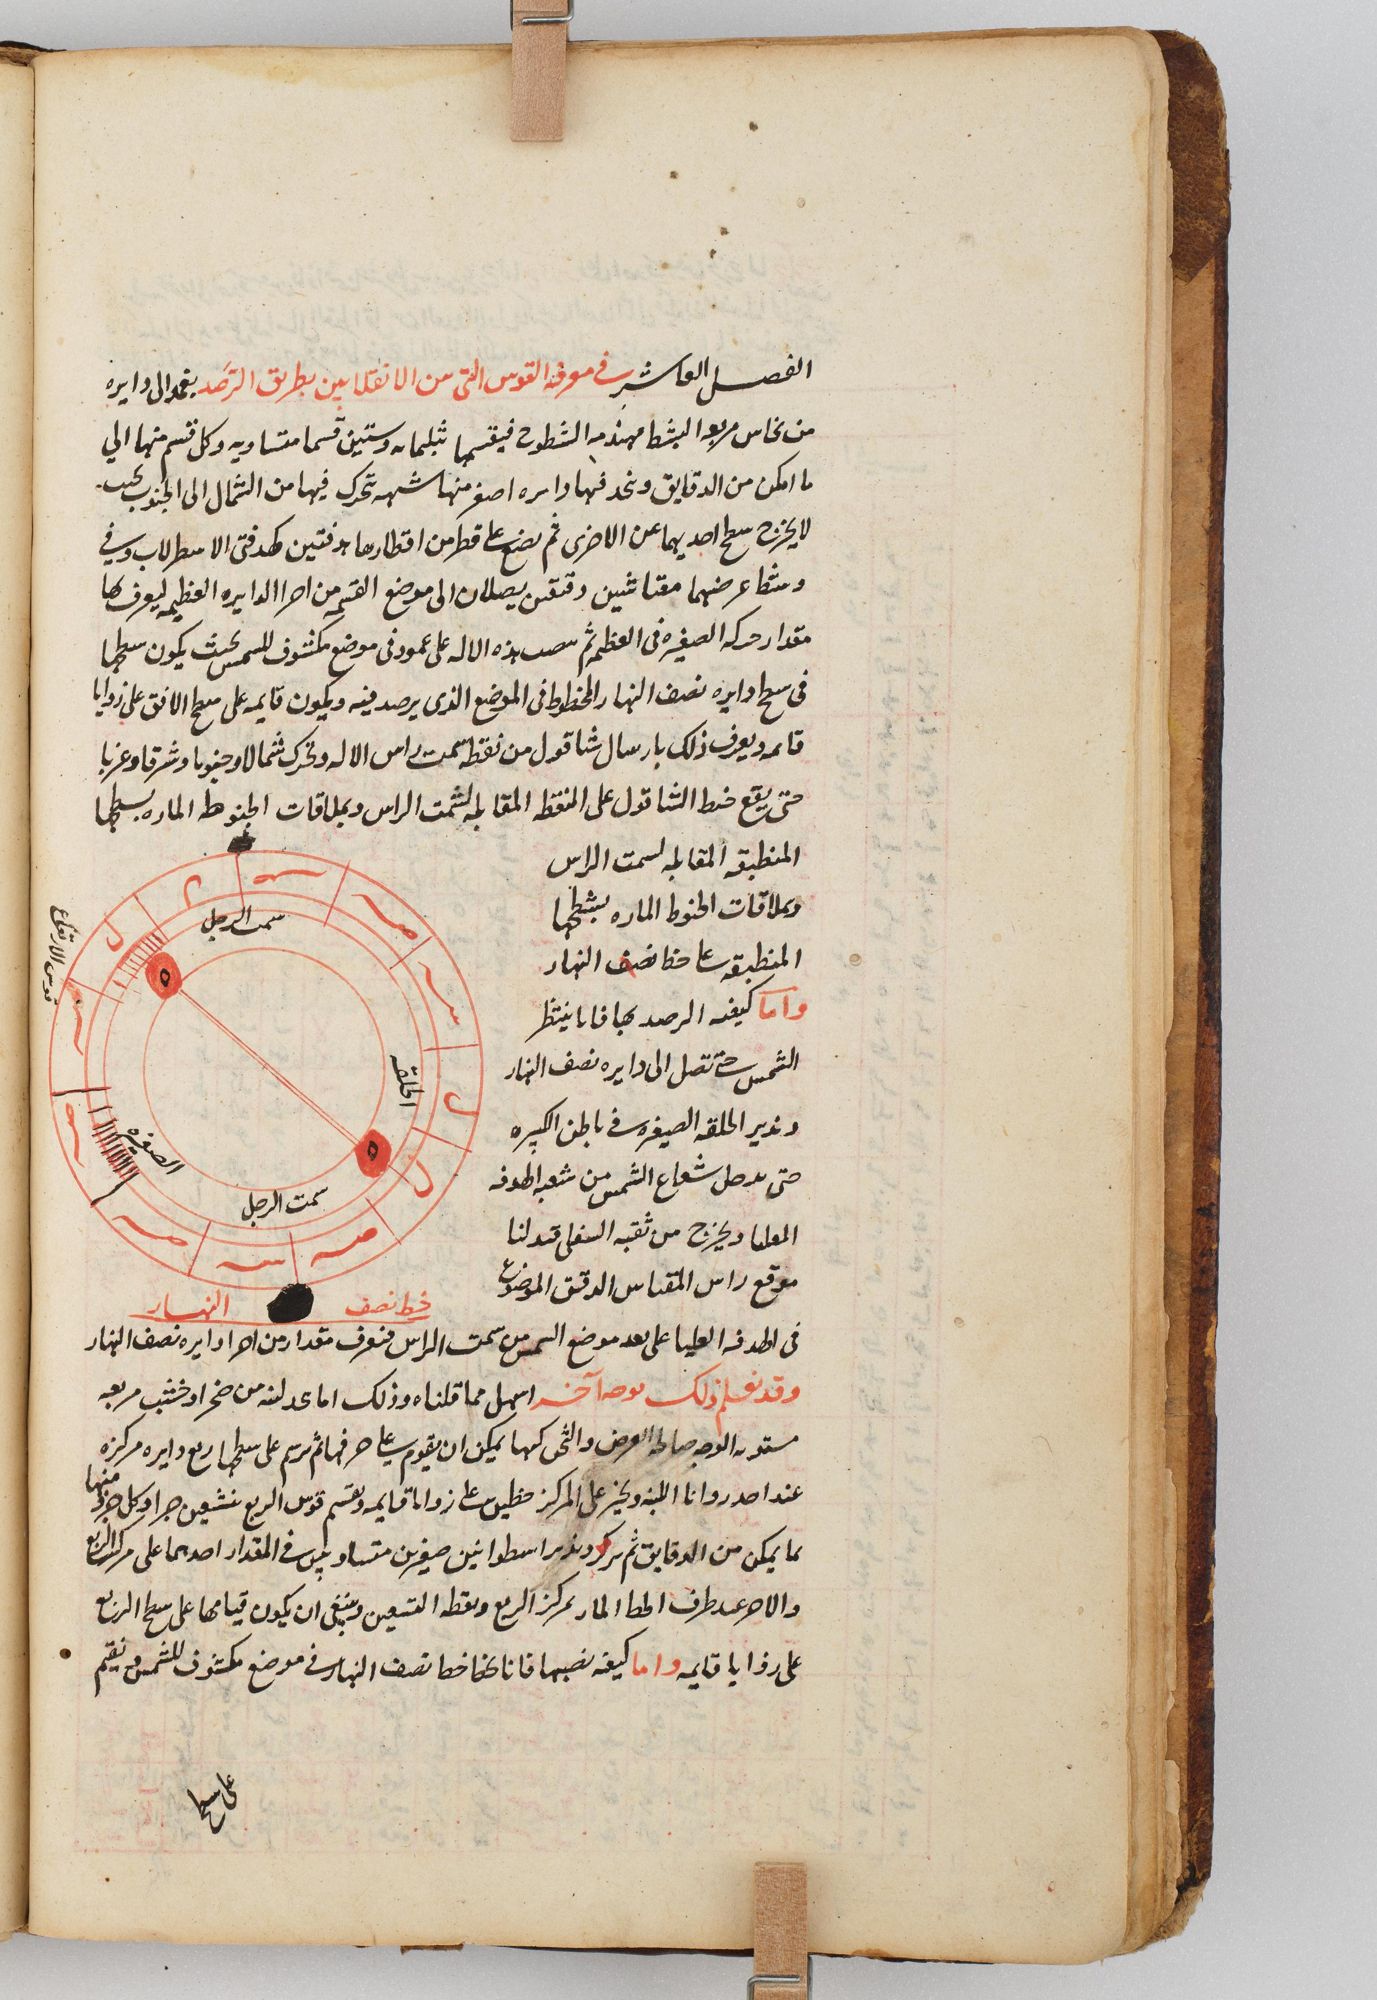 الفصل العاشر في معرفة القوس التي بين الانقلابين بطريق الرصد يعمد الى دايره
من نحاس مربعه البسط مهندمه السطوح فيقسمها بثلثمايه وستين قسما متساويه وكل قسم منها الي
ما امكن من الدقايق ونتخذ فيها دايره اصغر منها تتحرك فيها من الشمال الى الجنوب بحيث
لا يخرج سطح احديهما عن الاخرى ثم نضع على قطر من اقطارها هدفتين كهدفتى الاسطرلاب وفي
وسط عرضهما مقياسين دقيقين يصلان الى موضع القسمه من اجزا الدايره العظيمه ليعرف بها
مقدار حركه الصغيره فى العظيمه ثم ننصب هذه الاله على عمود فى موضع مكشوف للشمس بحيث يكون سطحها
فى سطح دايره نصف النهار المخطوط فى الموضع الذى يرصد فيه ويكون قايمه على سطح الافق على زوايا
قايمه ويعرف ذلك بارسال شاقول من نقطه سمت راس الاله وتحرك شمالا وجنوبا وشرقا وغربا
حتى يقع خيط الشاقول على النقطه المقابله لسمت الراس وبملاقات الخيوط الماره بسطحها
المنطبقه المقابله لسمت الراس
وبملاقات الخيوط الماره بسطحها
المنطبقه على خط نصف النهار
واما كيفيه الرصد بها فانا ننتظر
الشمس حتى تصل الى دايره نصف النهار
وندير الحلقه الصغيره في باطن الكبيره
حتى يدخل شعاع الشمس من ثقبه الهدفه
العليا ويخرج من ثقبه السفلى فيدلنا
موقع راس المقياس الدقيق الموضوع
فى الهدفه العليا على بعد موضع الشمس من سمت الراس فنعرف مقداره من اجزا دايره نصف النهار
وقد نعلم ذلك بوجه آخر اسهل مما قلناه وذلك لبنه من صخر او خشب مربعه
مستويه الوجه صالحه العرض والثخن كيما يمكن ان يقوم على حرفها ثم نرسم على سطحها ربع دايره مركزه
عند احد زوايا اللبنه على المركز خطين على زوايا قايمه ونقسم قوس الربع بتسعين جزا وكل جزو منها
بما يمكن من الدقايق ثم نركز وتدين اسطوانين صغيرين متساويين في المقدار احدهما على مركز الربع
والاخر عند طرف الخط المار بمركز الربع ونقطه التسعين وينبغى ان يكون قيامها على سطح الربع
على زوايا قايمه واما كيفيه نصبها فانا نخط خط نصف النهار في موضع مكشوف للشمس ونقيم
على سطح
سمت الرجل
قوس الارتفاع
الحلقه
الصغيره
سمت الرجل
خط نصف النهار